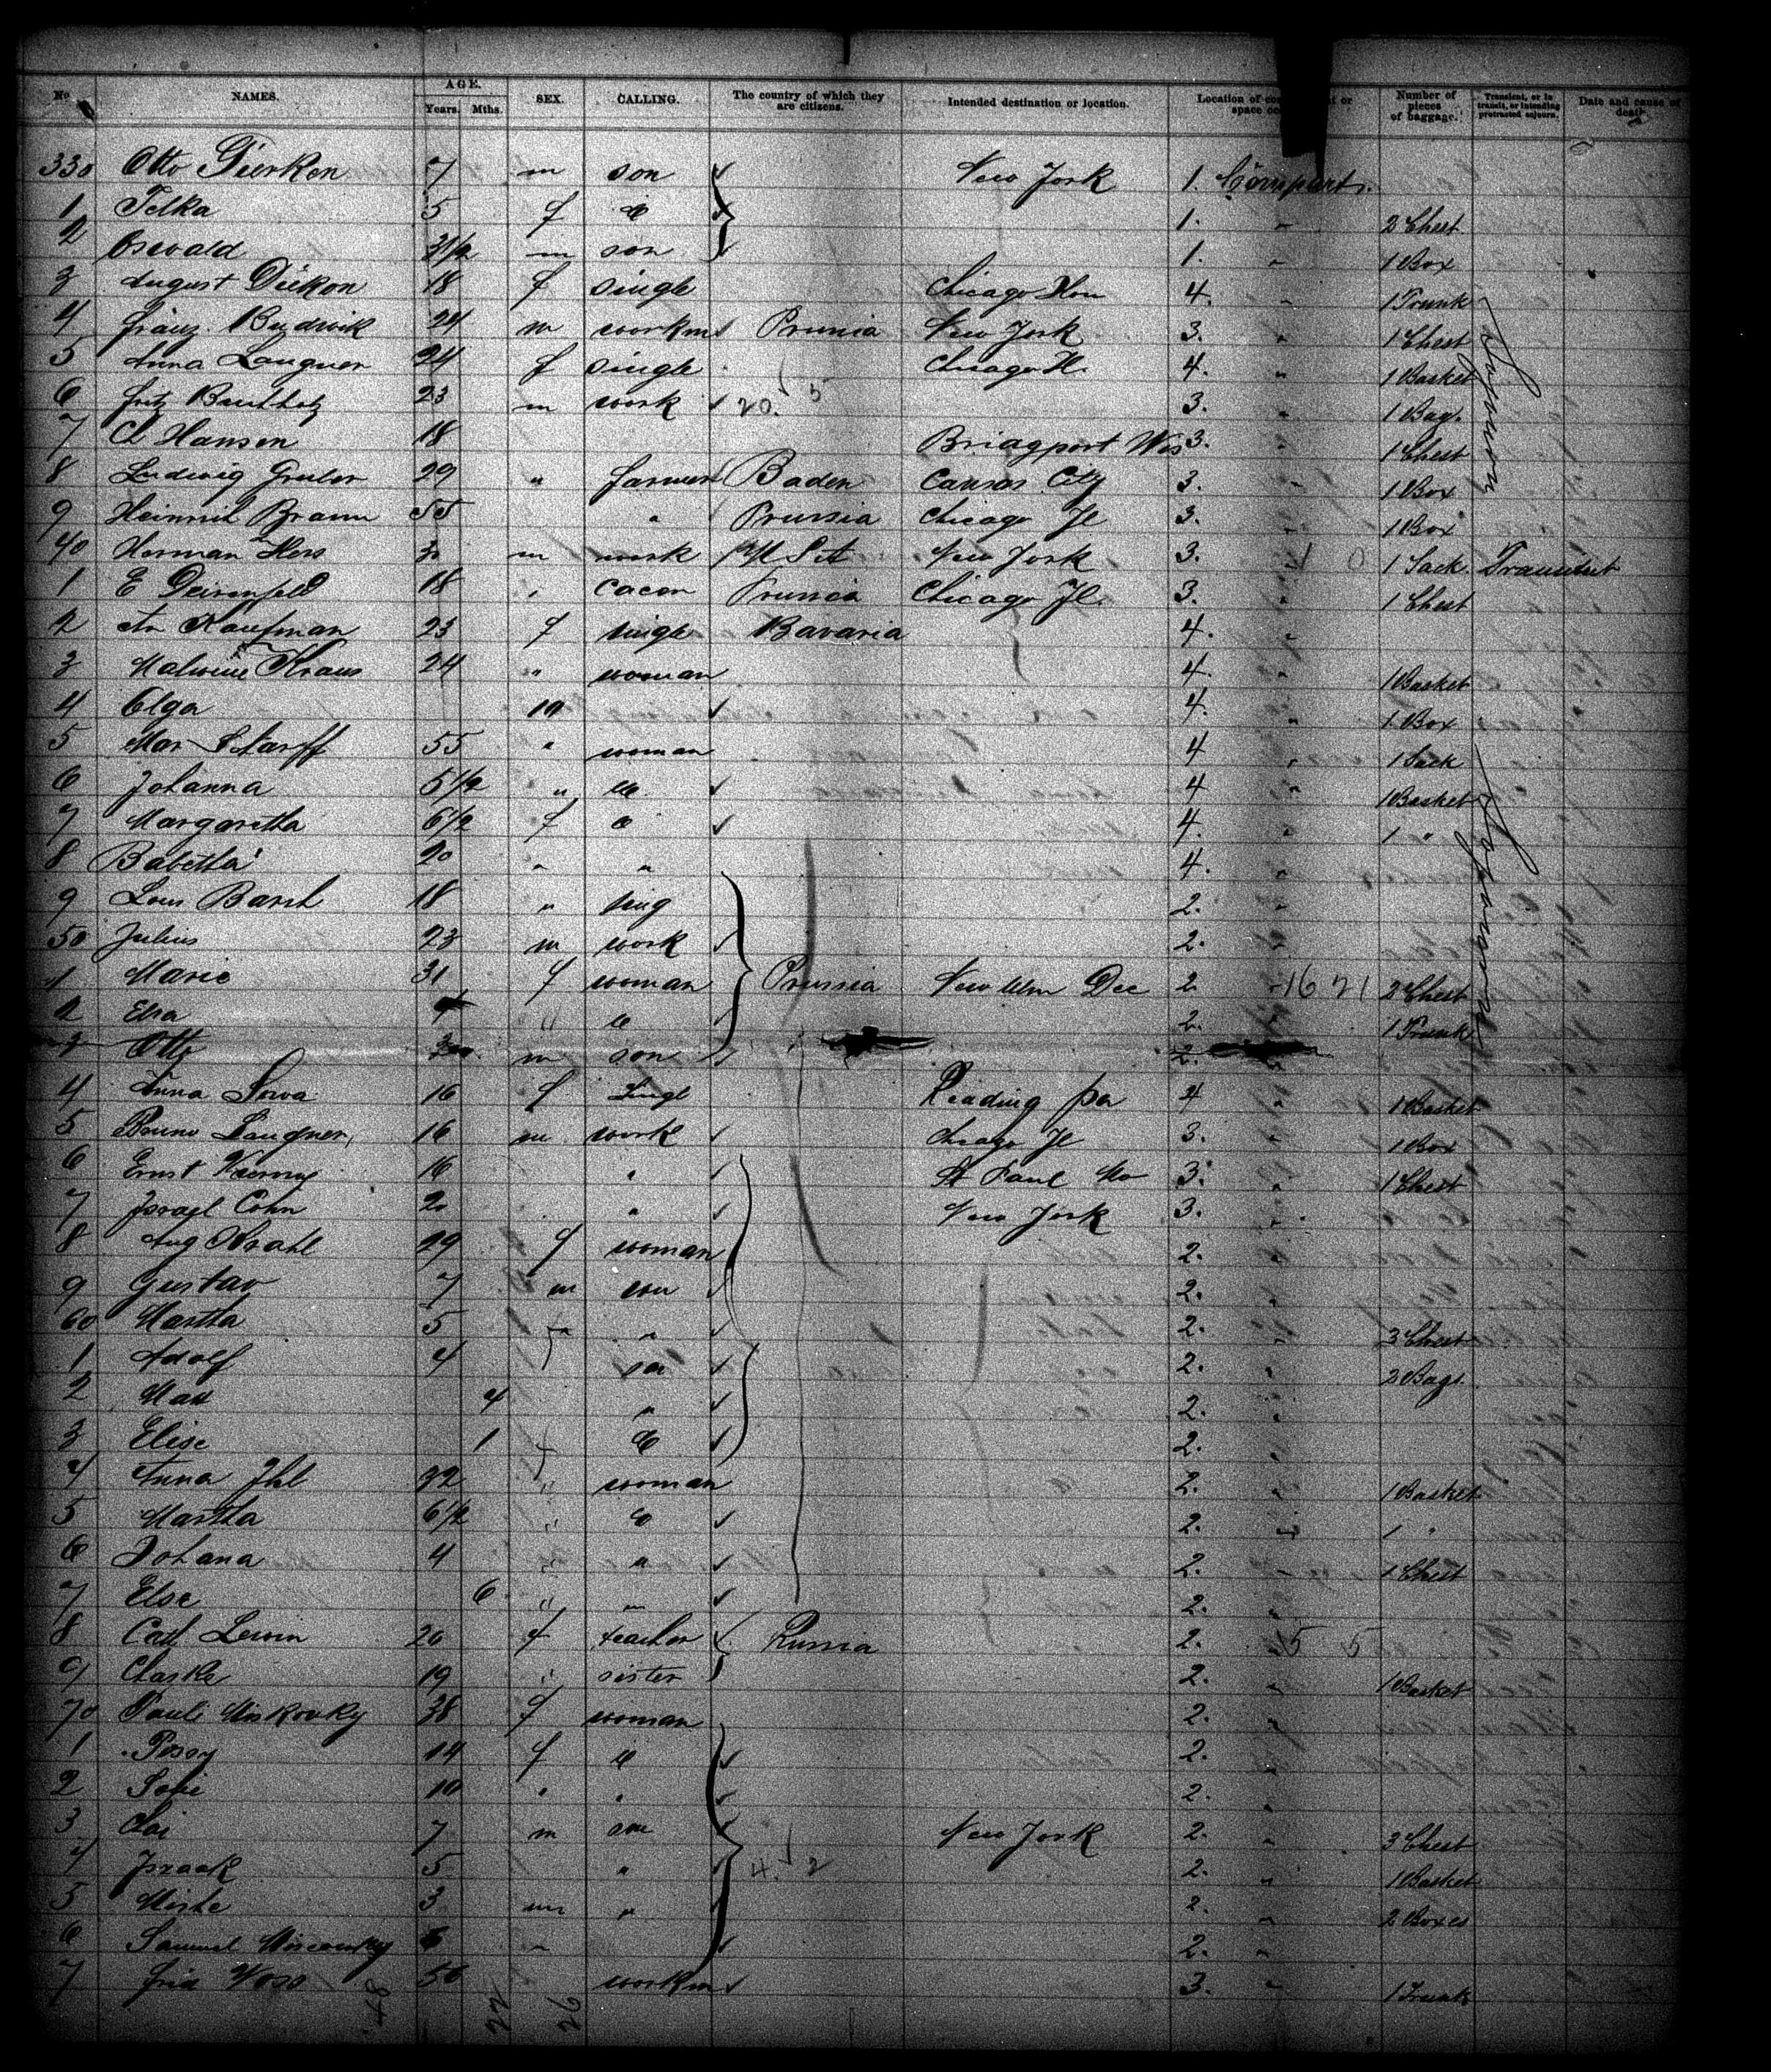 No NAMES. AGE. Years. Mths. SEX. CALLING. The country of which they are citizens. Intended destination or location. Location of space Number of pieces of baggage. Transient, or in transit, or intending protracted sojourn. Date and cause of death.
330 Otto Dierken 7 m son New York 1. Compart.
1 Telka 5 f 1. " 2 Chest
2 Oswald 3 1/2 m son 1. " 1 Box
3 August Dickon 18 f single Chicago 4. " 1 Trunk
4 Franz 24 m workm Prussia New York 3. " 1 Chest
5 Anna Langner 24 f single Chicago Il. 4. " 1 Basket
6 Fritz 23 m work 20 5 3. " 1 Bag.
7 Hansen 18 Bridgport Wis 3. " 1 Chest
8 Ludwig Gruber 29 " farmer Baden Cansas City 3. " 1 Box
9 Heinrich Braun 55 " Prussia Chicago Il 3. " 1 Box
40 Herman Hess m work New York 3. 1 Sack. Transitut
1 E 18 Prussia Chicago Il. 3. " 1 Chest
2 An Kaufman 23 f single Bavaria 4. "
3 Malwine Kraus 24 " woman 4. " 1 Basket
4 Elga 4. " 1 Box
5 Mar Starff 55 " woman 4 " 1 Sack
6 Johanna 5 1/2 " 4 " 1 Basket
7 Margaretha 6 1/2 f 4. " 1 "
8 Babetta 20 " " 4. "
9 Louis 18 " sing 2. "
50 Julius 23 m work 2. "
1 Marie 31 f woman Prussia New Ulm 2 16 21 2 Chest
2 Elsa " 2. 1 Trunk
3 Otto 3 m son 2.
4 Anna Sowa 16 f Singl Reading pa 4 " 1 Basket
5 Bruno Langner, 16 m work Chicago Il 3. " 1 Box
6 Ernst 16 " St Paul 3. " 1 Chest
7 Israel Cohn 20 " New York 3. "
8 Aug Krahl 29 f woman 2. "
9 Gustav 7 m son 2. "
60 Martha 5 " 2. " 3 Chest
1 Adolf 4 2. " 2 Bags.
2 Max 4 " 2. "
3 Elise 1 2. "
4 Anna Ihl 32 " woman 2. " 1 Basket
5 Martha 6 1/2 " 2. " 1 "
6 Johana 4 " " 2. " 1 Chest
7 Else 6 " " 2. "
8 Lewin 20 f teacher Russia 2. 5 5
9 Chaske 19 " sister 2. " 1 Basket
70 Pauli 38 f woman 2. "
1 Pessy 14 f 2. "
2 Sofie 10 " " 2. "
3 7 m son New York 2. " 3 Chest
4 Israak 5 " 4. 2 2. " 1 Basket
5 3 m " 2. " 2 Boxes
6 Samuel " 2. "
7 50 workm 3. " 1 Trunk
Sojourn
Sojourn
84. 22 26